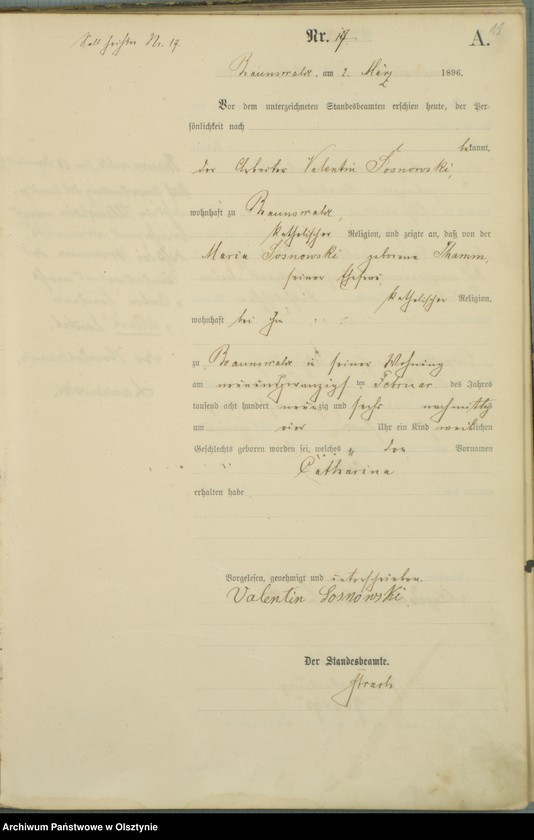 Nr. 19
A.
Braunswalde, am 2. März 1896.
Vor dem unterzeichneten Standesbeamten erschien heute, der Per-
sönlichkeit nach
bekannt,
der Arbeiter Valentin Sosnowski,
wohnhaft zu Braunswalde,
katholischer Religion, und zeigte an, daß von der
Maria Sosnowski geborene Thamm,
seiner Ehefrau
katholischer Religion,
wohnhaft bei ihm
zu Braunswalde in seiner Wohnung
am neunundzwanzigsten Februar des Jahres
tausend acht hundert neunzig und sechs nachmittags
um vier Uhr ein Kind weiblichen
Geschlechts geboren worden sei, welches den Vornamen
Catharina
erhalten habe
Vorgelesen, genehmigt und unterschrieben.
Valentin Sosnowski
Der Standesbeamte.
Archiwum Państwowe w Olsztynie